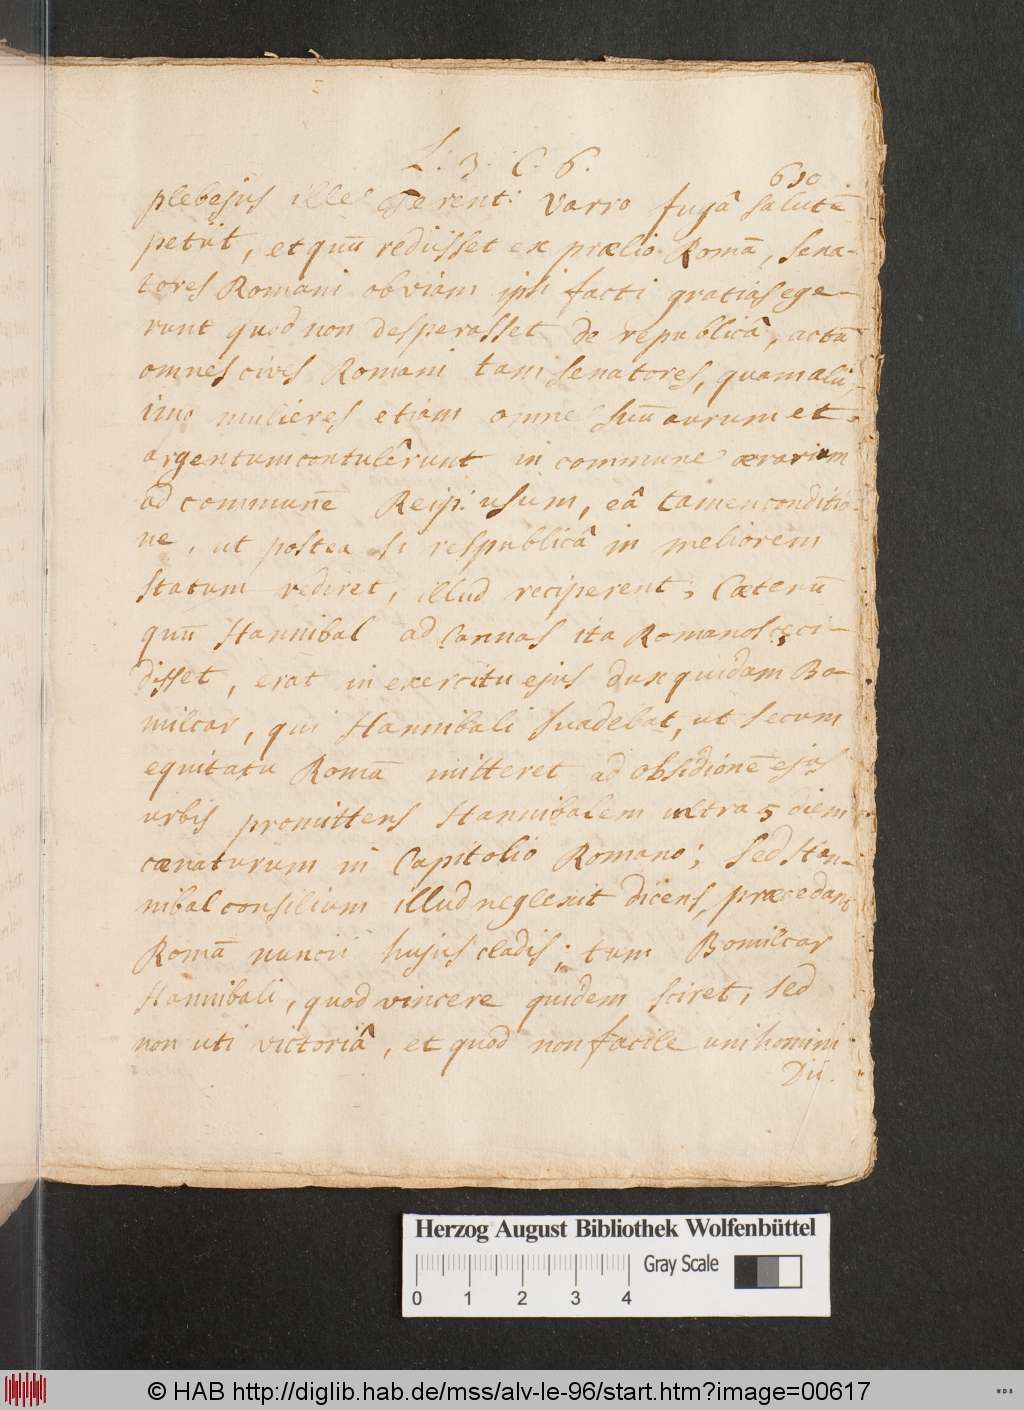 L. 3. C. 6.
610
plebejus ille Terent: Varro fugâ salutē
petiit, et quū rediisset ex prælio Romā, sena-
tores Romani obviam ipsi facti gratias ege-
runt quod non desperasset de republicâ,
omnes cives Romani tam senatores, quam alii,
imo mulieres etiam omne suū aurum et
argentum contulêrunt in commune ærarium
ad commune Reip: usum, eâ tamen conditio-
ne, ut postea si respublicâ in meliorem
statum rediret, illud reciperent; Cæterū
quū Hannibal ad Cannas ita Romanos ceci-
disset, erat in exercitu ejus dux quidam Bo-
milcar, qui Hannibali suadebat, ut secum
equitatu Romā mitteret ad obsidionē ejus
urbis promittens Hannibalem ultra 5 diem
cænaturum in Capitolio Romano; sed Han-
nibal consilium illud neglexit dicens, præcedant
Romā nuncii hujus cladis; tum Bomilcar
Hannibali, quod vincere quidem sciret, sed
non uti victoriâ, et quod non facile uni homini
Dii.
Herzog August Bibliothek Wolfenbüttel
Gray Scale
0 1 2 3 4
© HAB http://diglib.hab.de/mss/alv-le-96/start.htm?image=00617